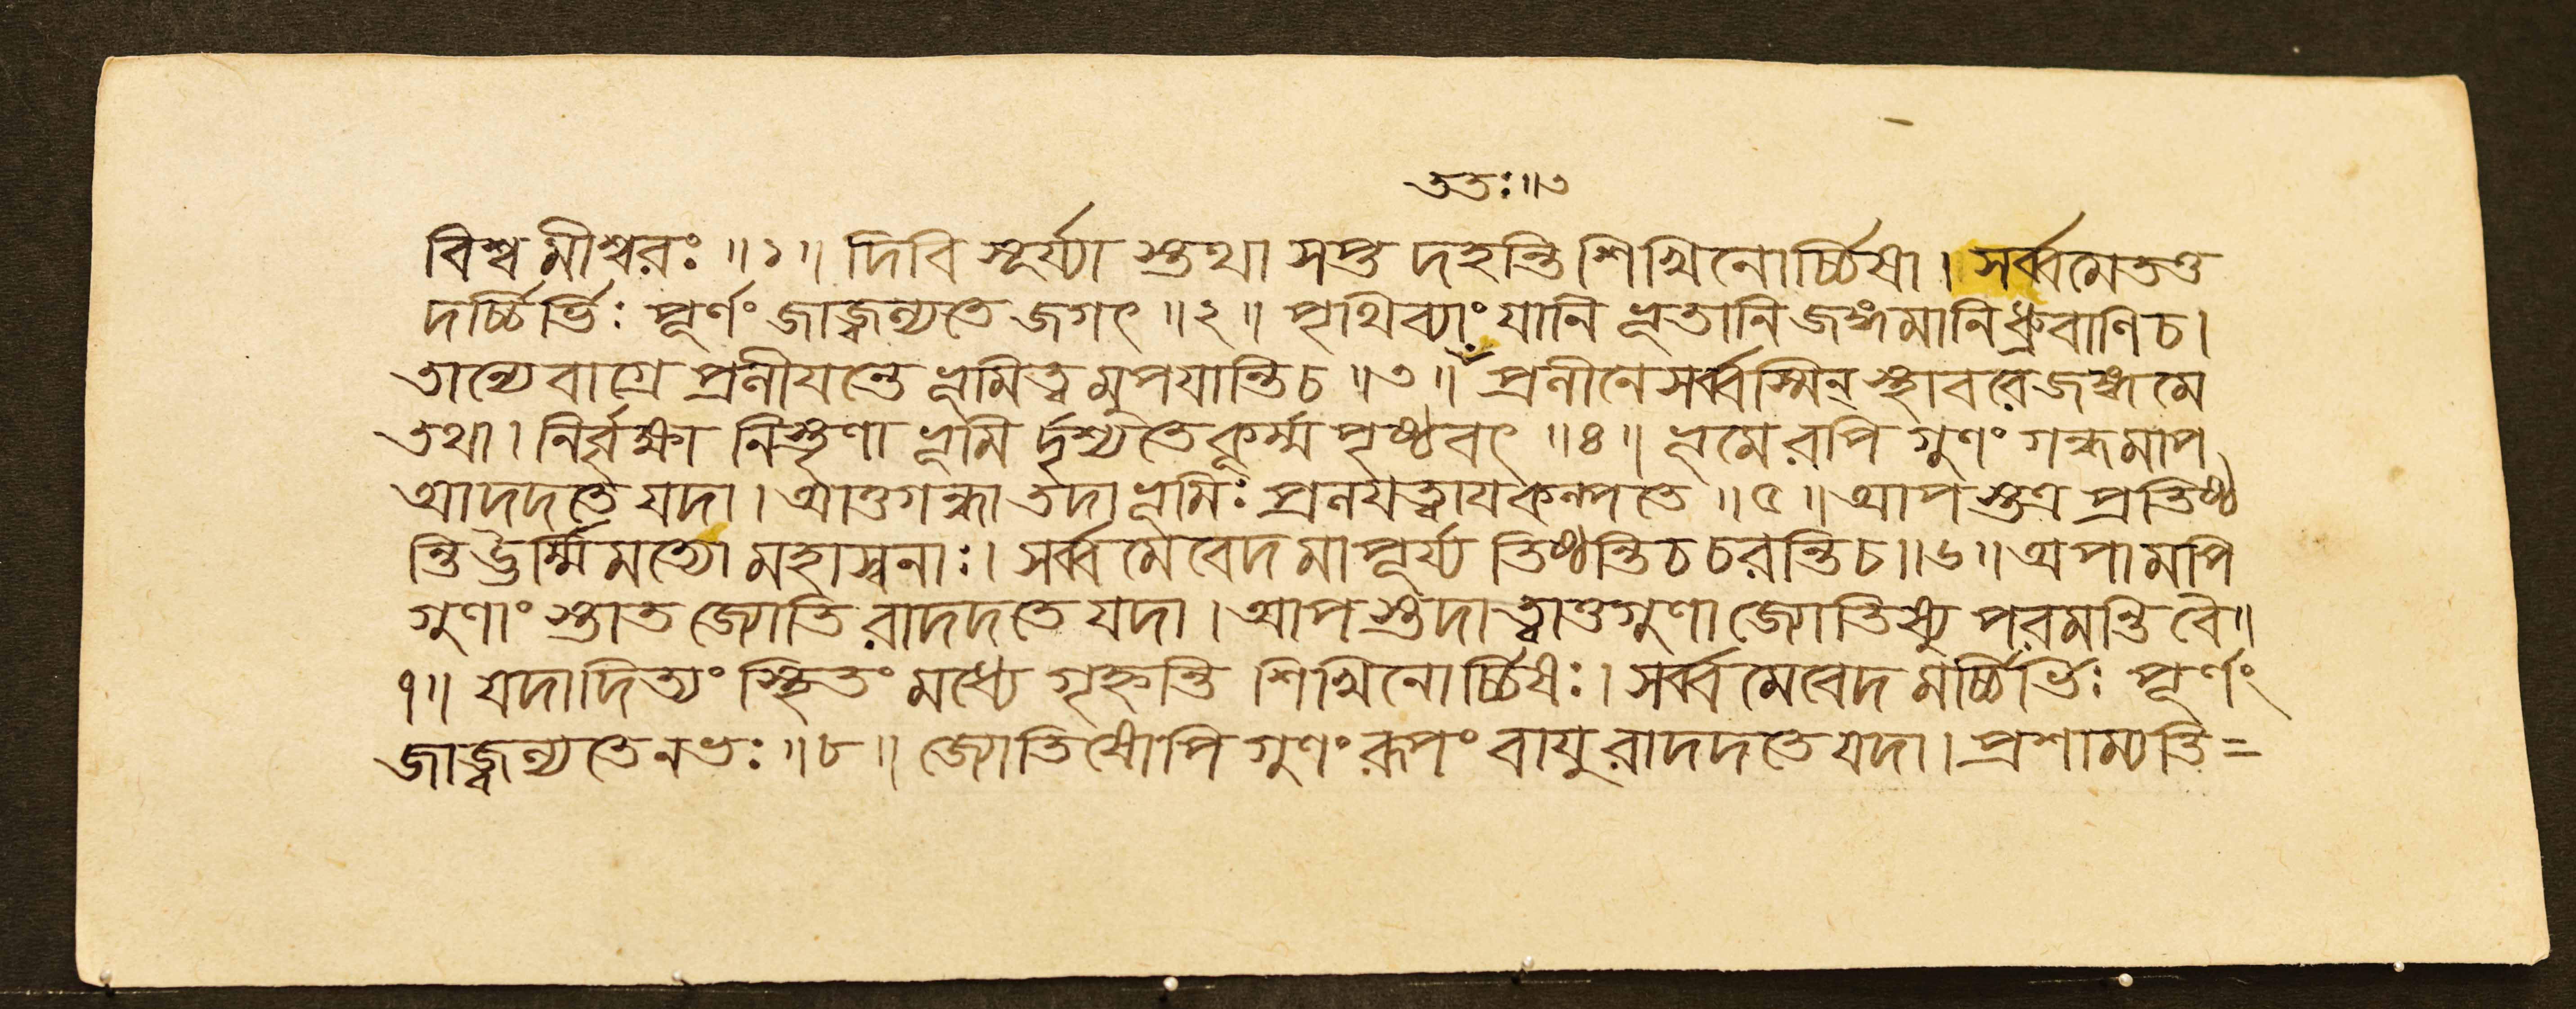 ততঃ॥৩
বিশ্বমীশ্বরঃ ॥১॥ দিবি সূর্য্যা স্তথা সপ্ত দহন্তি শিখিনোর্চ্চিষা। সর্ব্বমেতত্ত
দর্চ্চির্ভিঃ পূর্ণং জাজ্বল্যতে জগৎ ॥২॥ পৃথিব্যাং যানি ভূতানি জঙ্গমানি ধ্রুবাণি চ।
তান্যেবাগ্রে প্রলীযন্তে ভূমিত্বমুপযান্তি চ ॥৩॥ প্রলীনে সর্ব্বস্মিন্ স্থাবরে জঙ্গমে
তথা। নির্বৃক্ষা নিস্তৃণা ভূমি র্দৃশ্যতে কূর্ম্মপৃষ্ঠবৎ ॥৪॥ ভূমেরপি গুণং গন্ধমাপ
আদদতে যদা। আত্তগন্ধা তদা ভূমিঃ প্রলযত্বায কল্পতে ॥৫॥ আপস্তত্র প্রতিষ্ঠ
ন্তি ঊর্ম্মিমত্যো মহাস্বনাঃ। সর্ব্বমেবেদমাপূর্য্য তিষ্ঠন্তি চ চরন্তি চ॥৬॥ অপামপি
গুণাং স্তাত জ্যোতিরাদদতে যদা। আপস্তদা ত্বাত্তগুণা জ্যোতিষ্যুপরমন্তি বৈ॥
৭॥ যদাদিত্যং স্থিতং মধ্যে গৃহ্নন্তি শিখিনোর্চ্চিষঃ। সর্ব্বমেবেদমর্চ্চির্ভিঃ পূর্ণং
জাজ্বল্যতে নভঃ ॥৮॥ জ্যোতিষোপি গুণং রূপং বাযুরাদদতে যদা। প্রশাম্যতি=